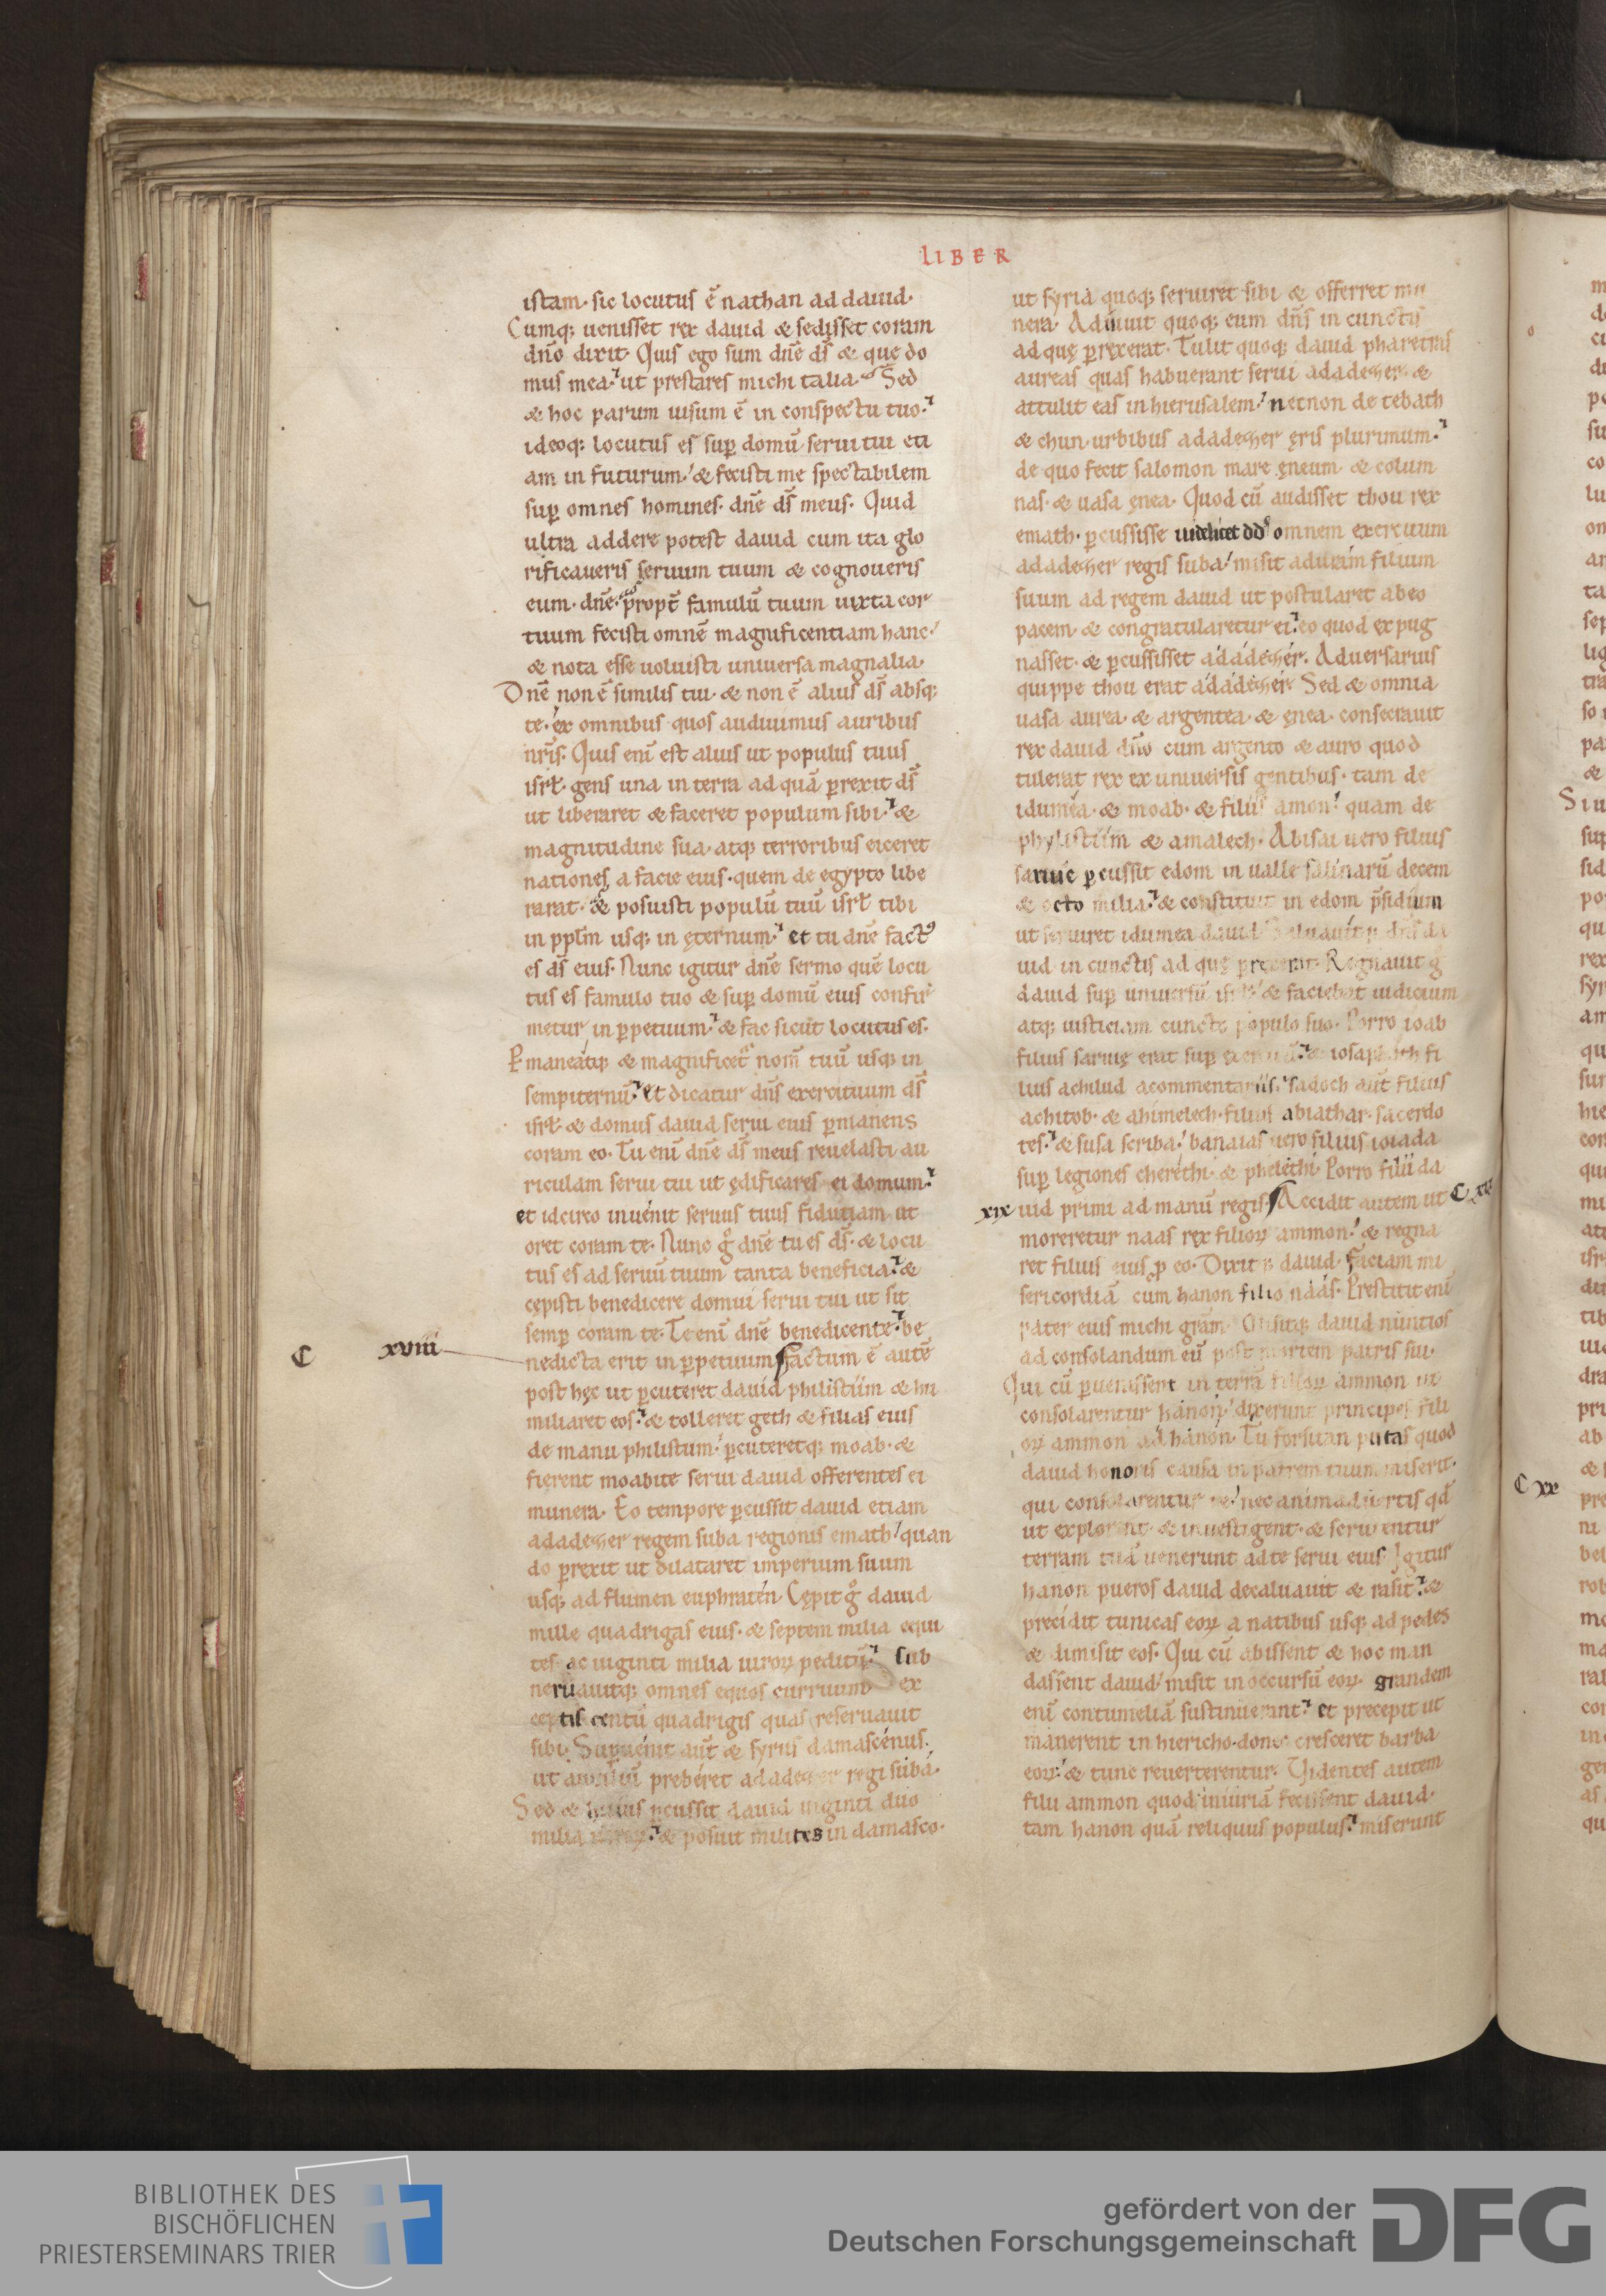 LIBER
istam· sic locutus ē nathan ad dauid·
Cumq; uenisset rex dauid & sedisset coram
dn̄o dixit· Quis ego sum dn̄e ds̄ & que do
mus mea· ut prestares michi talia· Sed
& hoc parum uisum ē in conspectu tuo·
ideoq; locutus es sup̱ domū serui tui eti
am in futurum· & fecisti me spectabilem
sup̱ omnes homines· dn̄e ds̄ meus· Quid
ultra addere potest dauid cum ita glo
rificaueris seruum tuum & cognoueris
eum· dn̄e· propt̄ famulū tuum iuxta cor
tuum fecisti omnē magnificentiam hanc·
& nota esse uoluisti uniuersa magnalia·
Dn̄e non ē similis tui· & non ē alius ds̄ absq;
te· ex omnibus quos audiuimus auribus
nr̄is· Quis eni est alius ut populus tuus
isrł· gens una in terra ad quā p̱rexit ds̄
ut liberaret & faceret populum sibi· &
magnitudine sua· atq; terroribus eiceret
nationes a facie eius· quem de egypto libe
rarat· & posuisti populū tuū isrł tibi
in pplm̄ usq; in ęternum· et tu dn̄e factꝰ
es ds̄ eius· Nunc igitur dn̄e sermo quē locu
tus es famulo tuo & sup̱ domū eius confir
metur in p̱petuum· & fac sicut locutus es·
P̱maneatq; & magnificet᷑ nom̄ tuū usq; in
sempiternū· Et dicatur dn̄s exercituum ds̄
isrł· & domus dauid serui eius p̱manens
coram eo· Tu eni dn̄e ds̄ meus reuelasti au
riculam serui tui ut ędificares ei domum·
et idcirco inuenit seruus tuus fidutiam ut
oret coram te· Nunc gͦ dn̄e tu es ds̄· & locu
tus es ad seruū tuum tanta beneficia· &
cępisti benedicere domui serui tui ut sit
semp̱ coram te· Te eni dn̄e benedicente· be
C xviii nedicta erit in p̱petuum Factum ē autē
post hęc ut p̱cuteret dauid philistiim & hu
miliaret eos· & tolleret geth & filias eius
de manu philistiim· p̱cuteretq; moab· &
fierent moabite serui dauid offerentes ei
munera· Eo tempore p̱cussit dauid etiam
adadezer regem suba regionis emath· quan
do p̱rexit ut dilataret imperium suum
usq; ad flumen euphraten· Cępit gͦ dauid
mille quadrigas eius· & septem milia equi
tes ac uiginti milia uiroꝝ peditū· sub
neruauitq; omnes equos curruum ex
ceptis centū quadrigis quas reseruauit
sibi· Supuenit aut̄ & syrus damascenus·
ut auxiliū preberet adadezer regi suba·
Sed & huius p̱cussit dauid uiginti duo
milia uiroꝝ· & posuit milites in damasco·
ut syria quoq; seruiret sibi & offerret mu
nera· Adiuuit quoq; eum dn̄s in cunctis
ad quę p̱rexerat· Tulit quoq; dauid pharetras
aureas quas habuerant serui adadezer· &
attulit eas in hierusalem· necnon de tebath
& chun urbibus adadezer ęris plurimum·
de quo fecit salomon mare ęneum· & colum
nas· & uasa ęnea· Quod cū audisset thou rex
emath· p̱cussisse uidelicet dd̄ omnem exercitum
adadezer regis suba· misit aduram filium
suum ad regem dauid ut postularet ab eo
pacem· & congratularetur ei· eo quod expug
nasset· & p̱cussisset adadezer· Aduersarius
quippe thou erat adadezer· Sed & omnia
uasa aurea· & argentea· & ęnea· consecrauit
rex dauid dn̄o cum argento & auro quod
tulerat rex ex uniuersis gentibus· tam de
idumea· & moab· & filiis amon· quam de
phylistiim & amalech· Abisai uero filius
saruię p̱cussit edom in ualle salinarū decem
& octo milia· & constituit in edom p̄sidium
ut seruiret idumea dauid· Saluauit q; dn̄s da
uid in cunctis ad quę prexerat· Regnauit gͦ
dauid sup̱ uniuersū isrł· & faciebat iudicium
atq; iusticiam cuncto populo suo· Porro ioab
filius saruię erat sup̱ exercitū· & iosaphath fi
lius achilud a commentariis· sadoch aut̄ filius
achitob· & ahimelech· filius abiathar· sacerdo
tes· & susa scriba· banaias uero filius ioiada
sup̱ legiones cherethi· & phelethi· Porro filii da
xix uid primi ad manū regis Accidit autem ut C xix
moreretur naas rex filioꝝ ammon· & regna
ret filius eius p̱ eo· Dixit q; dauid· Faciam mi
sericordiā cum hanon filio naas· Prestitit eni
pater eius michi grām· Misitq; dauid nuntios
ad consolandum eū post mortem patris sui·
Qui cū p̱uenissent in terrā filioꝝ ammon ut
consolarentur hanon· dixerunt principes fili
oꝝ ammon ad hanon· Tu forsitan putas quod
dauid honoris causa in patrem tuum miserit·
qui consolarentur te· nec animaduertis qd̄
ut explorent & inuestigent· & scrutentur
terram tuā uenerunt ad te serui eius· Igitur
hanon pueros dauid decaluauit & rasit· &
precidit tunicas eoꝝ a natibus usq; ad pedes
& dimisit eos· Qui cū abissent & hoc man
dassent dauid· misit in occursū eoꝝ· grandem
eni contumeliā sustinuerant· et precepit ut
manerent in hiericho· donec cresceret barba
eoꝝ· & tunc reuerterentur· Uidentes autem
filii ammon quod iniuriā fecissent dauid·
tam hanon quā reliquus populus· miserunt
C xx
BIBLIOTHEK DES
BISCHÖFLICHEN
PRIESTERSEMINARS TRIER
gefördert von der
Deutschen Forschungsgemeinschaft
DFG